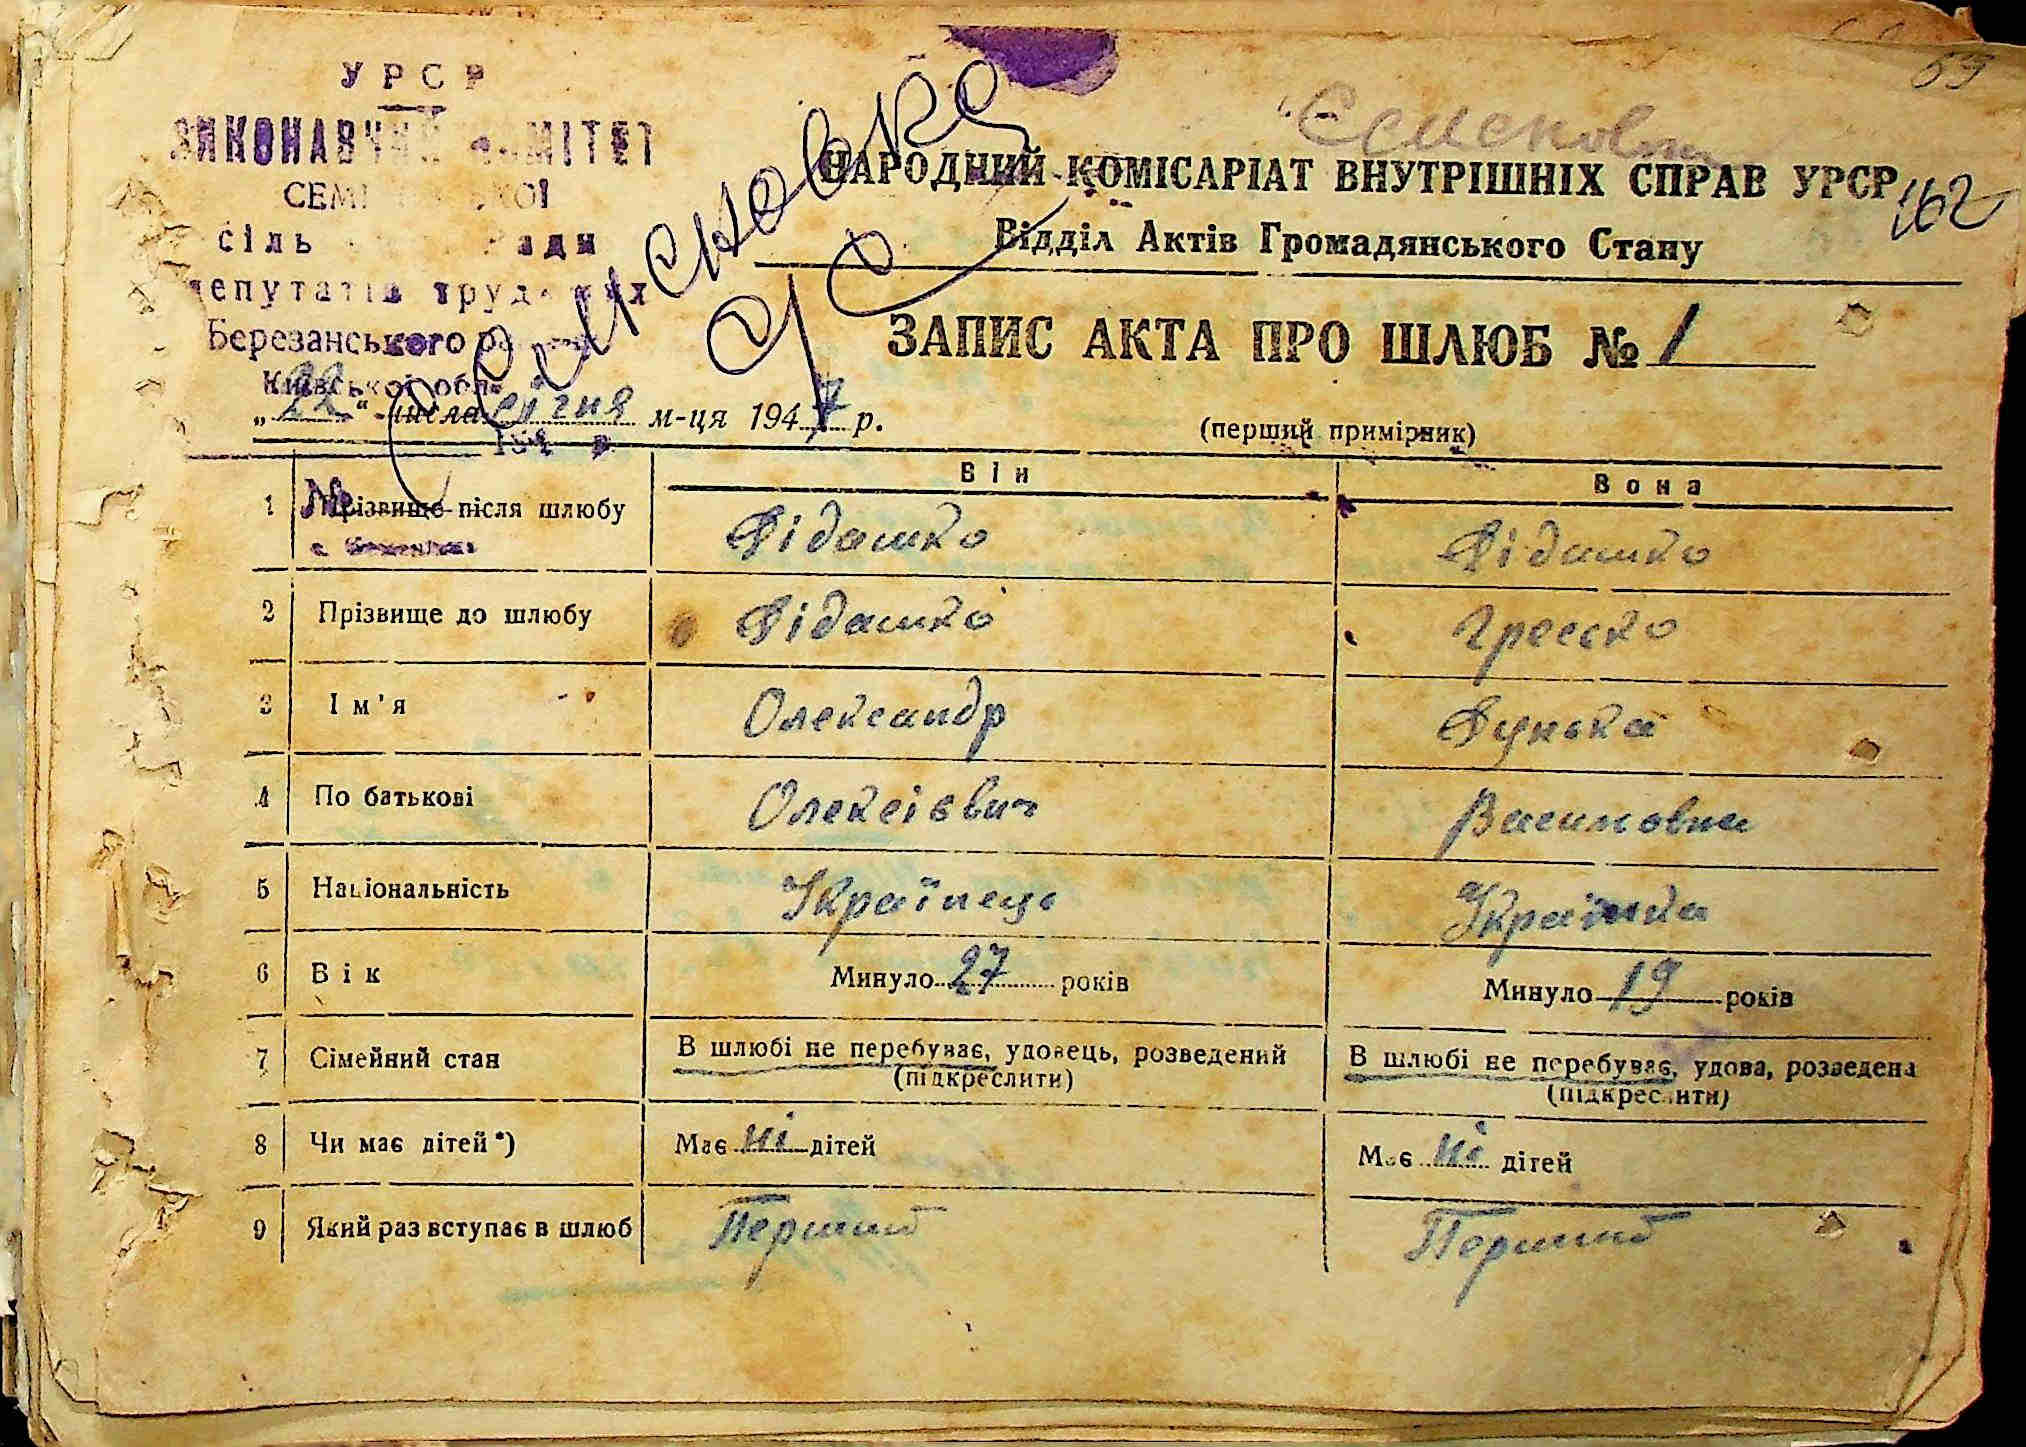 УРСР
СЕМ
сіль ради
депутатів трудящих
Березанського
Київської обл.
59
НАРОДНИЙ КОМІСАРІАТ ВНУТРІШНІХ СПРАВ УРСР
162
Відділ Актів Громадянського Стану
ЗАПИС АКТА ПРО ШЛЮБ № 1
„22“ числа січня м-ця 1947 р.
(перший примірник)
Він Вона
1 Прізвище після шлюбу Дідашко Дідашко
2 Прізвище до шлюбу Дідашко
3 Ім'я Олександр Дунька
4 По батькові Олексієвич Василовна
5 Національність Українець Українка
6 Вік Минуло 27 років Минуло 19 років
7 Сімейний стан В шлюбі не перебуває, удовець, розведений (підкреслити) В шлюбі не перебуває, удова, розведена (підкреслити)
8 Чи має дітей*) Має ні дітей Має ні дітей
9 Який раз вступає в шлюб Перший Перший